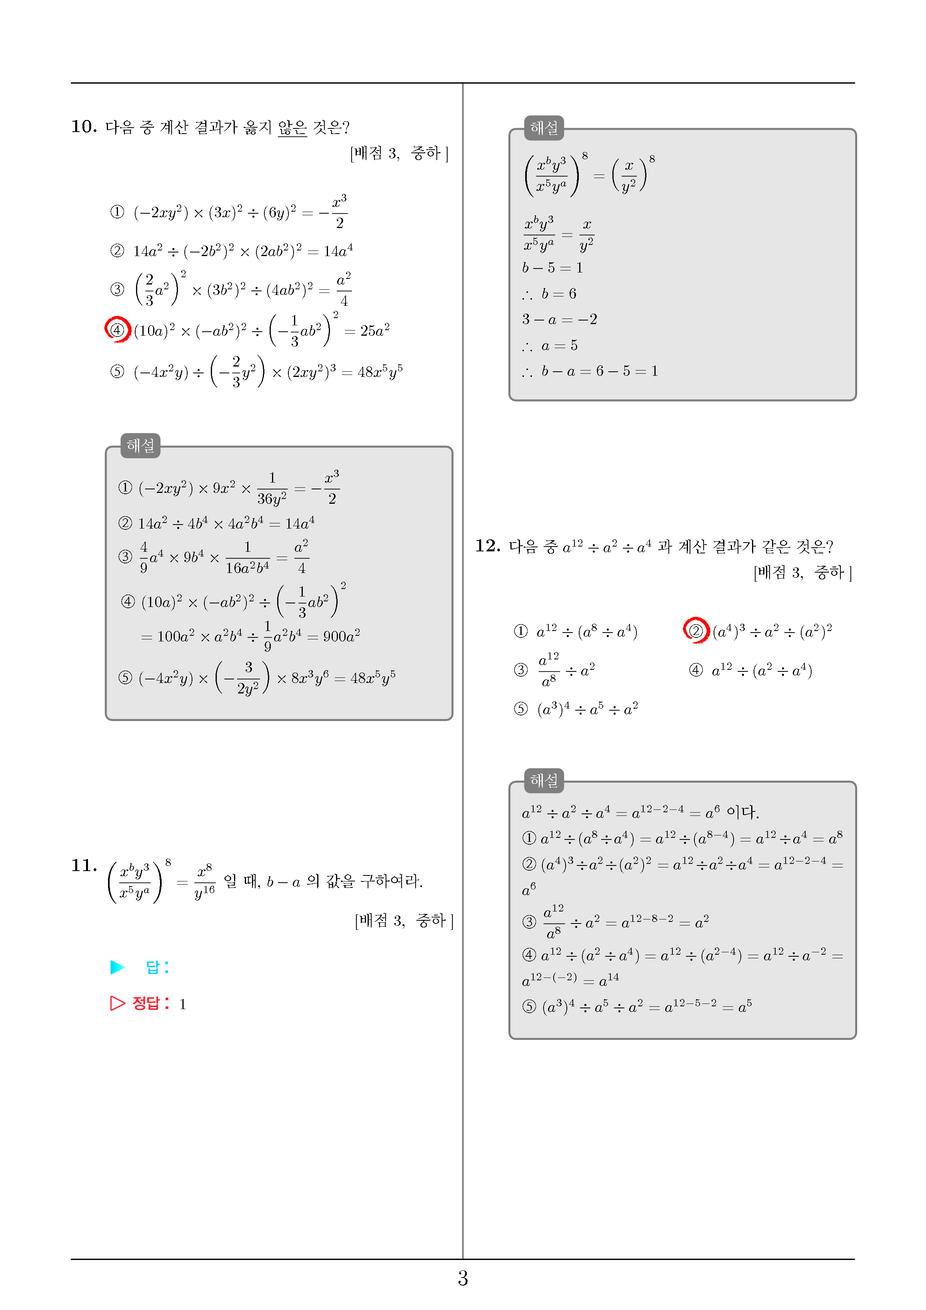 10. 다음 중 계산 결과가 옳지 않은 것은?
[배점 3, 중하]
① (−2xy²) × (3x)² ÷ (6y)² = −x³/2
② 14a² ÷ (−2b²)² × (2ab²)² = 14a⁴
③ (2/3 a²)² × (3b²)² ÷ (4ab²)² = a²/4
④ (10a)² × (−ab²)² ÷ (−1/3 ab²)² = 25a²
⑤ (−4x²y) ÷ (−2/3 y²) × (2xy²)³ = 48x⁵y⁵
해설
① (−2xy²) × 9x² × 1/(36y²) = −x³/2
② 14a² ÷ 4b⁴ × 4a²b⁴ = 14a⁴
③ 4/9 a⁴ × 9b⁴ × 1/(16a²b⁴) = a²/4
④ (10a)² × (−ab²)² ÷ (−1/3 ab²)²
= 100a² × a²b⁴ ÷ 1/9 a²b⁴ = 900a²
⑤ (−4x²y) × (−3/(2y²)) × 8x³y⁶ = 48x⁵y⁵
11. (xᵇy³/x⁵yᵃ)⁸ = x⁸/y¹⁶ 일 때, b − a 의 값을 구하여라.
[배점 3, 중하]
▶ 답:
▷ 정답: 1
해설
(xᵇy³/x⁵yᵃ)⁸ = (x/y²)⁸
xᵇy³/x⁵yᵃ = x/y²
b − 5 = 1
∴ b = 6
3 − a = −2
∴ a = 5
∴ b − a = 6 − 5 = 1
12. 다음 중 a¹² ÷ a² ÷ a⁴ 과 계산 결과가 같은 것은?
[배점 3, 중하]
① a¹² ÷ (a⁸ ÷ a⁴) ② (a⁴)³ ÷ a² ÷ (a²)²
③ a¹²/a⁸ ÷ a² ④ a¹² ÷ (a² ÷ a⁴)
⑤ (a³)⁴ ÷ a⁵ ÷ a²
해설
a¹² ÷ a² ÷ a⁴ = a¹²⁻²⁻⁴ = a⁶ 이다.
① a¹² ÷ (a⁸ ÷ a⁴) = a¹² ÷ (a⁸⁻⁴) = a¹² ÷ a⁴ = a⁸
② (a⁴)³ ÷ a² ÷ (a²)² = a¹² ÷ a² ÷ a⁴ = a¹²⁻²⁻⁴ =
a⁶
③ a¹²/a⁸ ÷ a² = a¹²⁻⁸⁻² = a²
④ a¹² ÷ (a² ÷ a⁴) = a¹² ÷ (a²⁻⁴) = a¹² ÷ a⁻² =
a¹²⁻⁽⁻²⁾ = a¹⁴
⑤ (a³)⁴ ÷ a⁵ ÷ a² = a¹²⁻⁵⁻² = a⁵
3